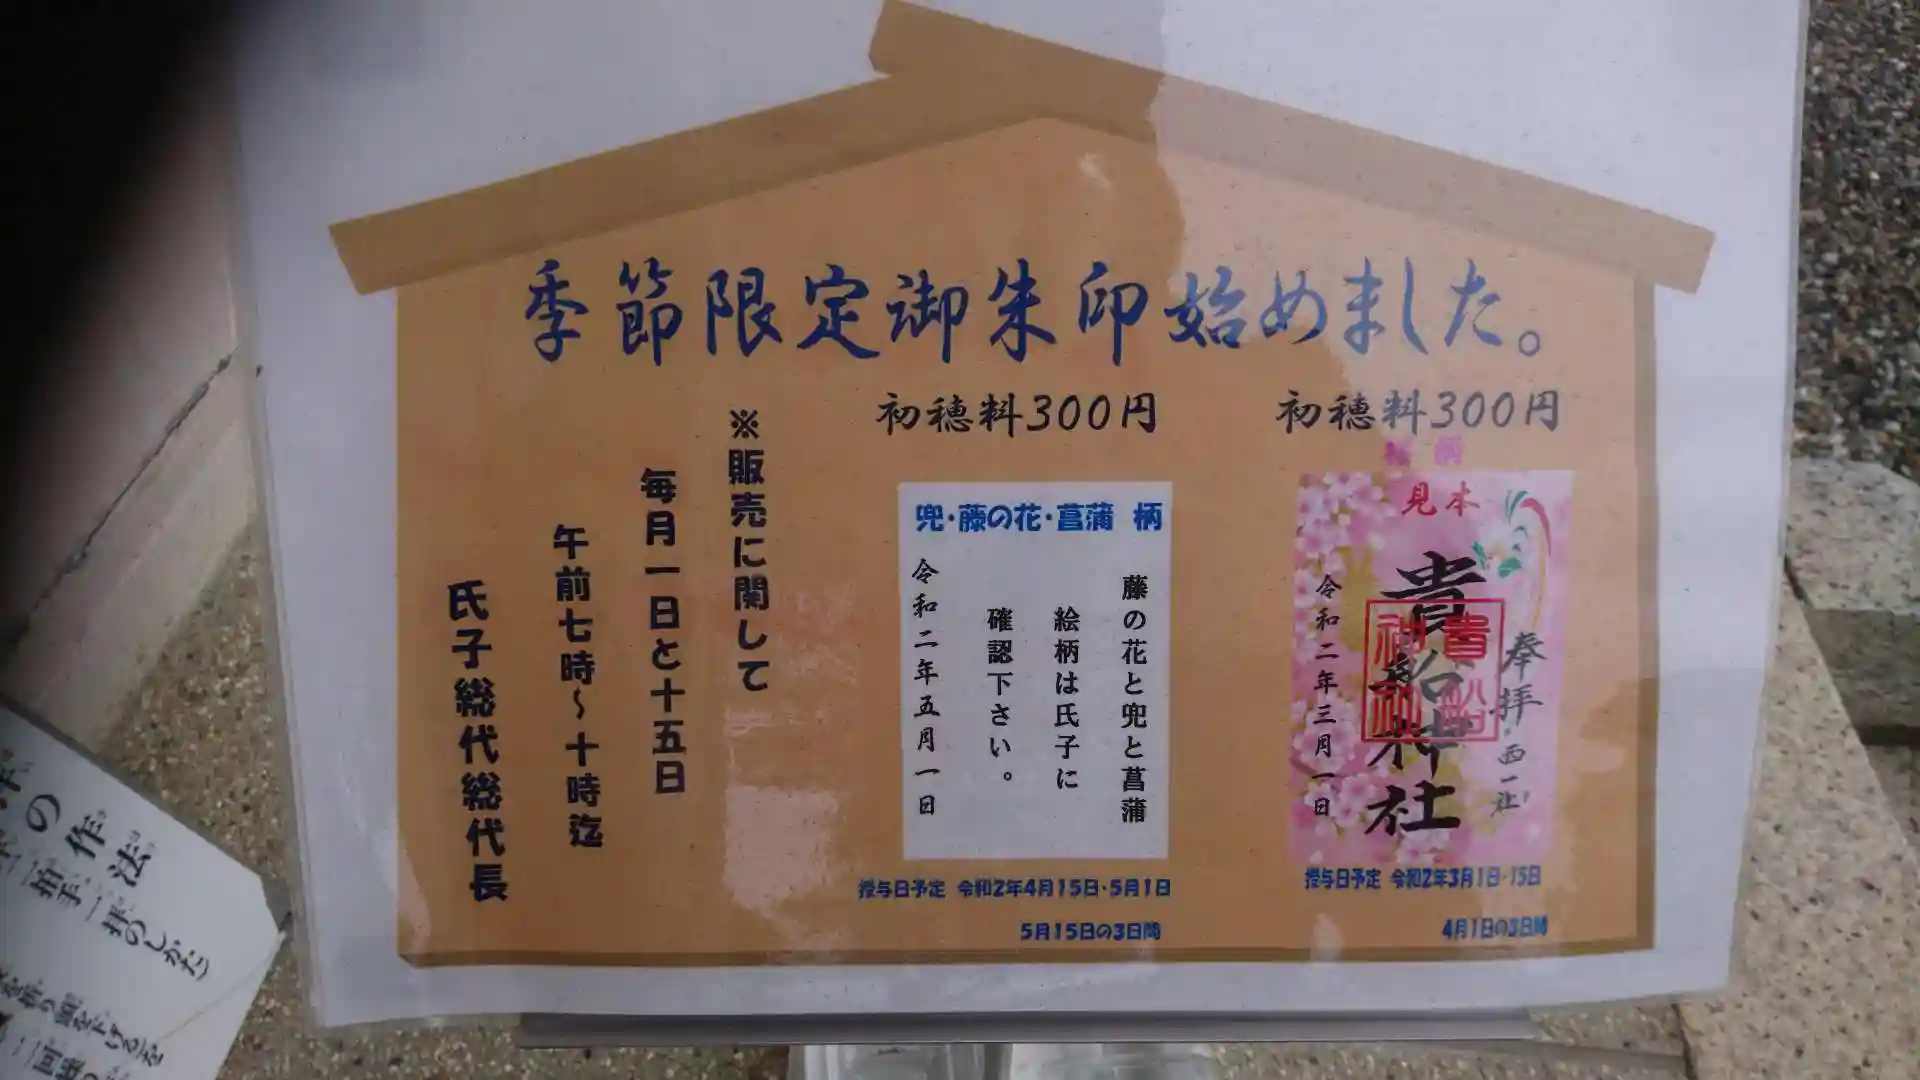 季節限定御朱印始めました。
初穂料300円
桜 柄
見本
奉拝
西一社
貴船神社
貴船
神社
令和二年三月一日
授与日予定 令和2年3月1日・15日
4月1日の3日間
初穂料300円
兜・藤の花・菖蒲 柄
藤の花と兜と菖蒲
絵柄は氏子に
確認下さい。
令和二年五月一日
授与日予定 令和2年4月15日・5月1日
5月15日の3日間
※販売に関して
毎月一日と十五日
午前七時～十時迄
氏子総代総代長
の作法